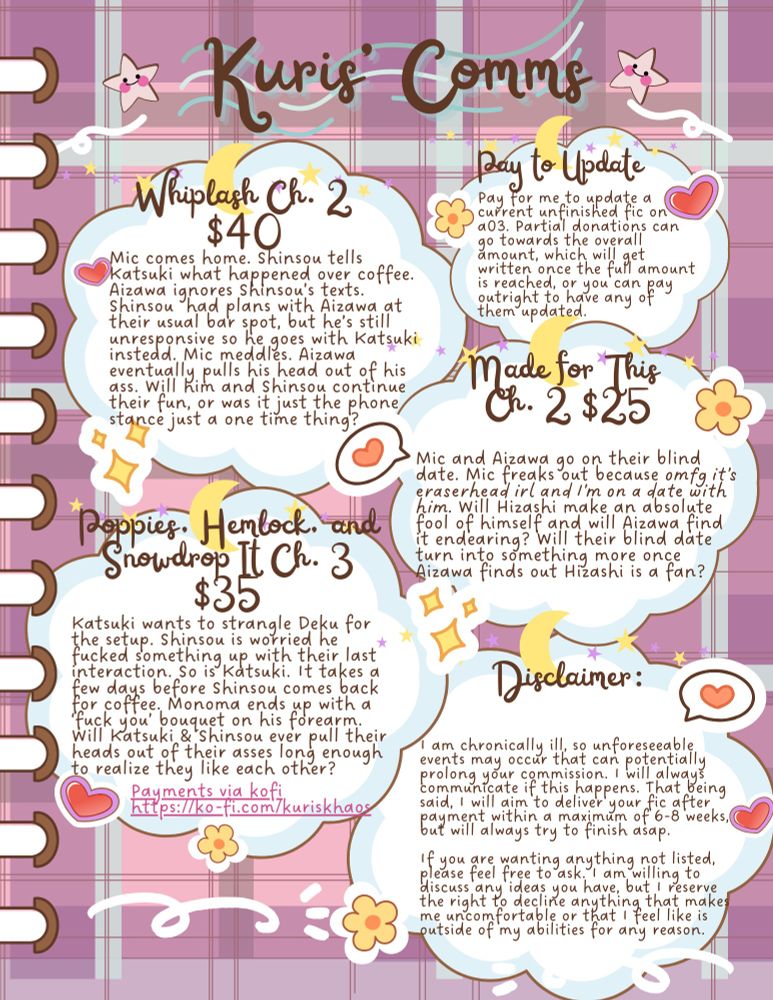 Kuris' Comms
Whiplash Ch. 2
$40
Mic comes home. Shinsou tells
Katsuki what happened over coffee.
Aizawa ignores Shinsou's texts.
Shinsou had plans with Aizawa at
their usual bar spot, but he's still
unresponsive so he goes with Katsuki
instead. Mic meddles. Aizawa
eventually pulls his head out of his
ass. Will him and Shinsou continue
their fun, or was it just the phone
stance just a one time thing?
Pay to Update
Pay for me to update a
current unfinished fic on
a03. Partial donations can
go towards the overall
amount, which will get
written once the full amount
is reached, or you can pay
outright to have any of
them updated.
Made for This
Ch. 2 $25
Mic and Aizawa go on their blind
date. Mic freaks out because omfg it's
eraserhead irl and I'm on a date with
him. Will Hizashi make an absolute
fool of himself and will Aizawa find
it endearing? Will their blind date
turn into something more once
Aizawa finds out Hizashi is a fan?
Poppies, Hemlock, and
Snowdrop It Ch. 3
$35
Katsuki wants to strangle Deku for
the setup. Shinsou is worried he
fucked something up with their last
interaction. So is Katsuki. It takes a
few days before Shinsou comes back
for coffee. Monoma ends up with a
'fuck you' bouquet on his forearm.
Will Katsuki & Shinsou ever pull their
heads out of their asses long enough
to realize they like each other?
Payments via kofi
https://ko-fi.com/kuriskhaos
Disclaimer:
I am chronically ill, so unforeseeable
events may occur that can potentially
prolong your commission. I will always
communicate if this happens. That being
said, I will aim to deliver your fic after
payment within a maximum of 6-8 weeks,
but will always try to finish asap.
If you are wanting anything not listed,
please feel free to ask. I am willing to
discuss any ideas you have, but I reserve
the right to decline anything that makes
me uncomfortable or that I feel like is
outside of my abilities for any reason.